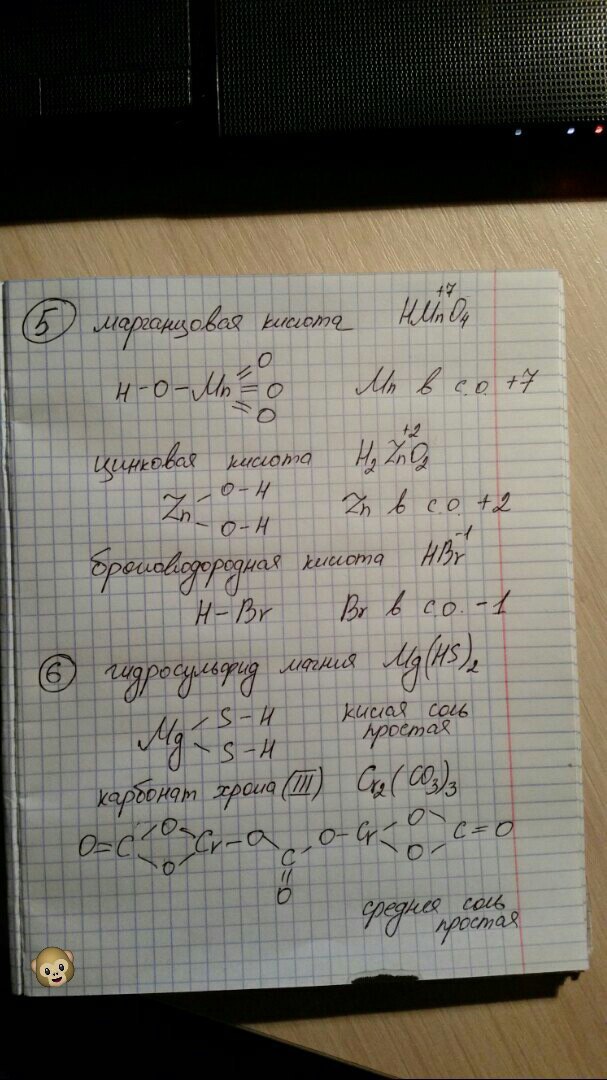 5 марганцовая кислота HMnO4 +7
H-O-Mn=O =O =O Mn в с.о. +7
цинковая кислота H2ZnO2 +2
Zn O-H O-H Zn в с.о. +2
бромоводородная кислота HBr -1
H-Br Br в с.о. -1
6 гидросульфид магния Mg(HS)2
Mg S-H S-H кислая соль
простая
карбонат хрома (III) Cr2(CO3)3
O=C O O Cr-O C =O O-Cr O O C=O
средняя соль
простая